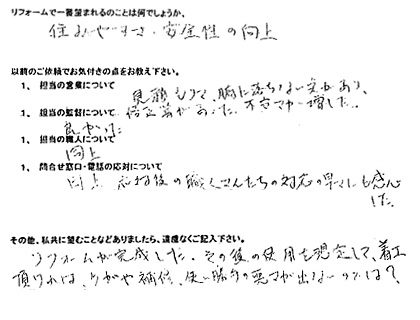 リフォームで一番望まれるのことは何でしょうか、
住みやすさ・安全性の向上
以前のご依頼でお気付きの点をお教え下さい。
1、 担当の営業について 見積もりで、腑に落ちない点があり、
修正等があった。不安さが増した。
1、 担当の監督について
良かった
1、 担当の職人について
同上
1、 問合せ窓口・電話の応対について
同上 応対後の職人さんたちの対応の早さにも感心
した。
その他、私共に望むことなどありましたら、遠慮なくご記入下さい。
リフォームが完成した、その後の使用を想定して、着工
頂ければ、や補修、使い勝手の悪さが出ないのでは?